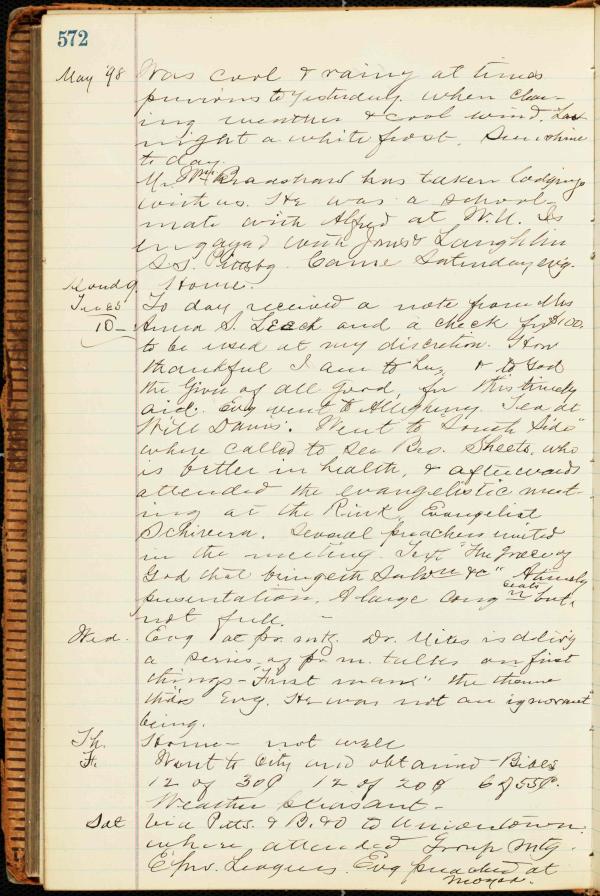 572
May '98 Was cool & rainy at times
previous to yesterday when clear-
ing weather & cool wind. Last
night a white frost. Sunshine
to day.
Mr. Wm Bradshaw has taken lodging
with us. He was a school
mate with Alfred at W.U. Is
engaged with Jones & Laughlin
S.S. Pittsbg. Came Saturday evg.
Monday. Home.
Tues To day received a note from Mrs
10- Anna S. Leech and a check for $100.
to be used at my discretion. How
thankful I am to her & to God
the Giver of all good, for this timely
aid. Evg went to Allegheny. Tea at
Will Davis'. Went to South Side
where called to see Bro. Sheets, who
is better in health, & afterwards
attended the evangelistic meet-
ing at the Rink, Evangelist
Schivera. Several preachers united
in the meeting. Text "The grace of
God that bringeth Salvn &c" A timely
presentation. A large congn but
seats
not full. -
Wed. Evg at pr. mtg. Dr. Miles is delivg
a series of pr. m. talks on first
things - "First man" the theme
this Evg. He was not an ignorant
being.
Th. Home - not well
F. Went to City and obtained - Bibles
12 of 30¢ 12 of 20¢ 6 of 55¢.
Weather pleasant -
Sat Via Pitts. & B.&O to Uniontown
where attended Group mtg.
Epw. Leagues. Evg preached at